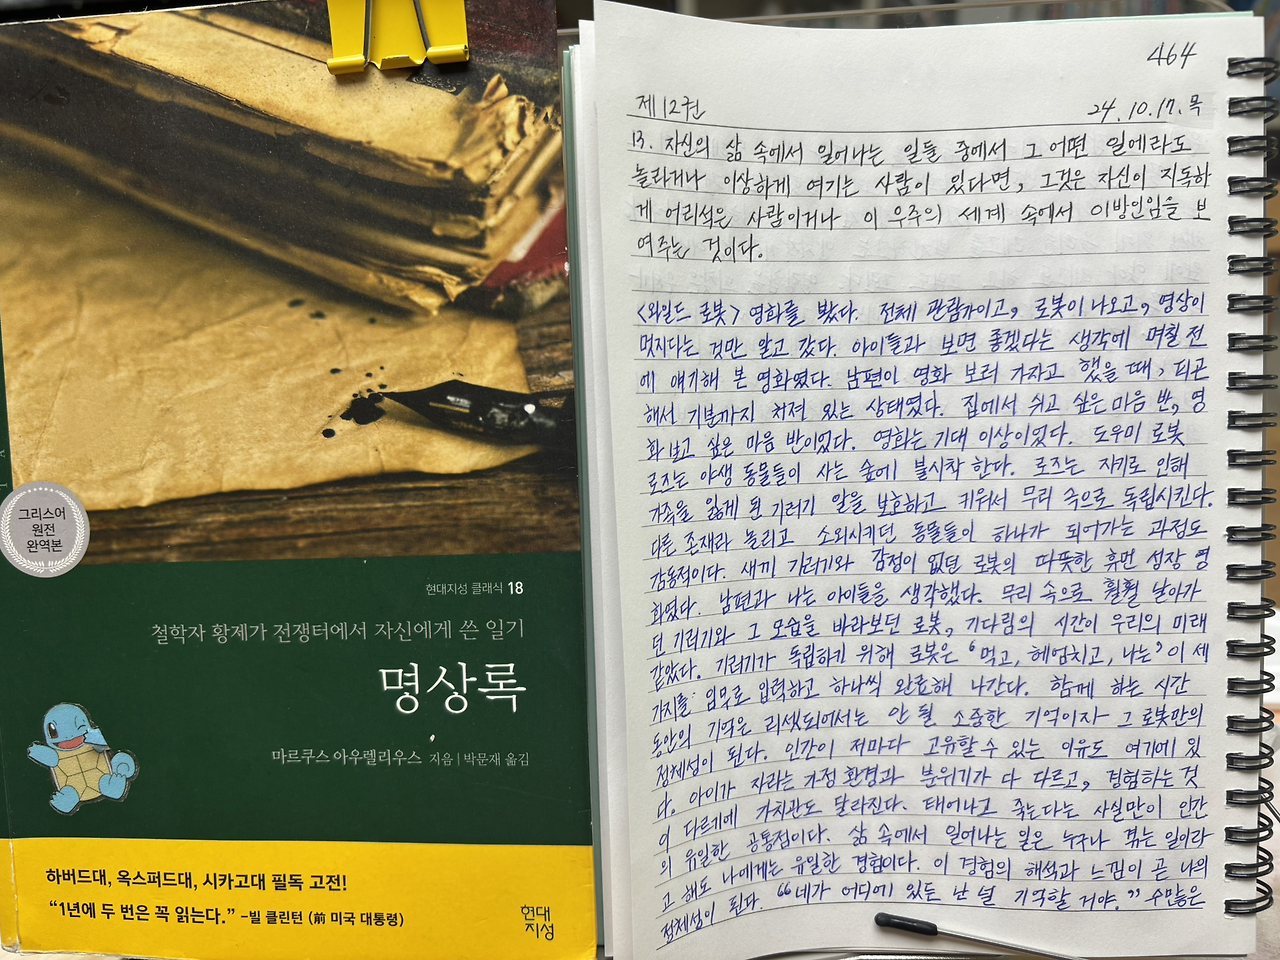 그리스어
원전
완역본
현대지성 클래식 18
철학자 황제가 전쟁터에서 자신에게 쓴 일기
명상록
마르쿠스 아우렐리우스 지음 | 박문재 옮김
하버드대, 옥스퍼드대, 시카고대 필독 고전!
“1년에 두 번은 꼭 읽는다.” –빌 클린턴 (前 미국 대통령)
현대
지성
464
제12권 24.10.17.목
13. 자신의 삶 속에서 일어나는 일들 중에서 그 어떤 일에라도
놀라거나 이상하게 여기는 사람이 있다면, 그것은 자신이 지독하
게 어리석은 사람이거나 이 우주의 세계 속에서 이방인임을 보
여주는 것이다.
<와일드 로봇> 영화를 봤다. 전체 관람가이고, 로봇이 나오고, 영상이
멋지다는 것만 알고 갔다. 아이들과 보면 좋겠다는 생각에 며칠 전
에 얘기해 본 영화였다. 남편이 영화 보러 가자고 했을 때, 피곤
해서 기분까지 처져 있는 상태였다. 집에서 쉬고 싶은 마음 반, 영
화 보고 싶은 마음 반이었다. 영화는 기대 이상이었다. 도우미 로봇
로즈는 야생 동물들이 사는 숲에 불시착 한다. 로즈는 자기로 인해
가족을 잃게 된 기러기 알을 보호하고 키워서 무리 속으로 독립시킨다.
다른 존재라 놀리고 소외시키던 동물들이 하나가 되어가는 과정도
감동적이다. 새끼 기러기와 감정이 없던 로봇의 따뜻한 휴먼 성장 영
화였다. 남편과 나는 아이들을 생각했다. 무리 속으로 훨훨 날아가
던 기러기와 그 모습을 바라보던 로봇, 기다림의 시간이 우리의 미래
같았다. 기러기가 독립하기 위해 로봇은 ‘먹고, 헤엄치고, 나는’ 이 세
가지를 임무로 입력하고 하나씩 완료해 나간다. 함께 하는 시간
동안의 기억은 리셋되어서는 안 될 소중한 기억이자 그 로봇만의
정체성이 된다. 인간이 저마다 고유할 수 있는 이유도 여기에 있
다. 아이가 자라는 가정 환경과 분위기가 다 다르고, 경험하는 것
이 다르기에 가치관도 달라진다. 태어나고 죽는다는 사실만이 인간
의 유일한 공통점이다. 삶 속에서 일어나는 일은 누구나 겪는 일이라
고 해도 나에게는 유일한 경험이다. 이 경험의 해석과 느낌이 곧 나의
정체성이 된다. “네가 어디에 있든 난 널 기억할 거야.” 수많은